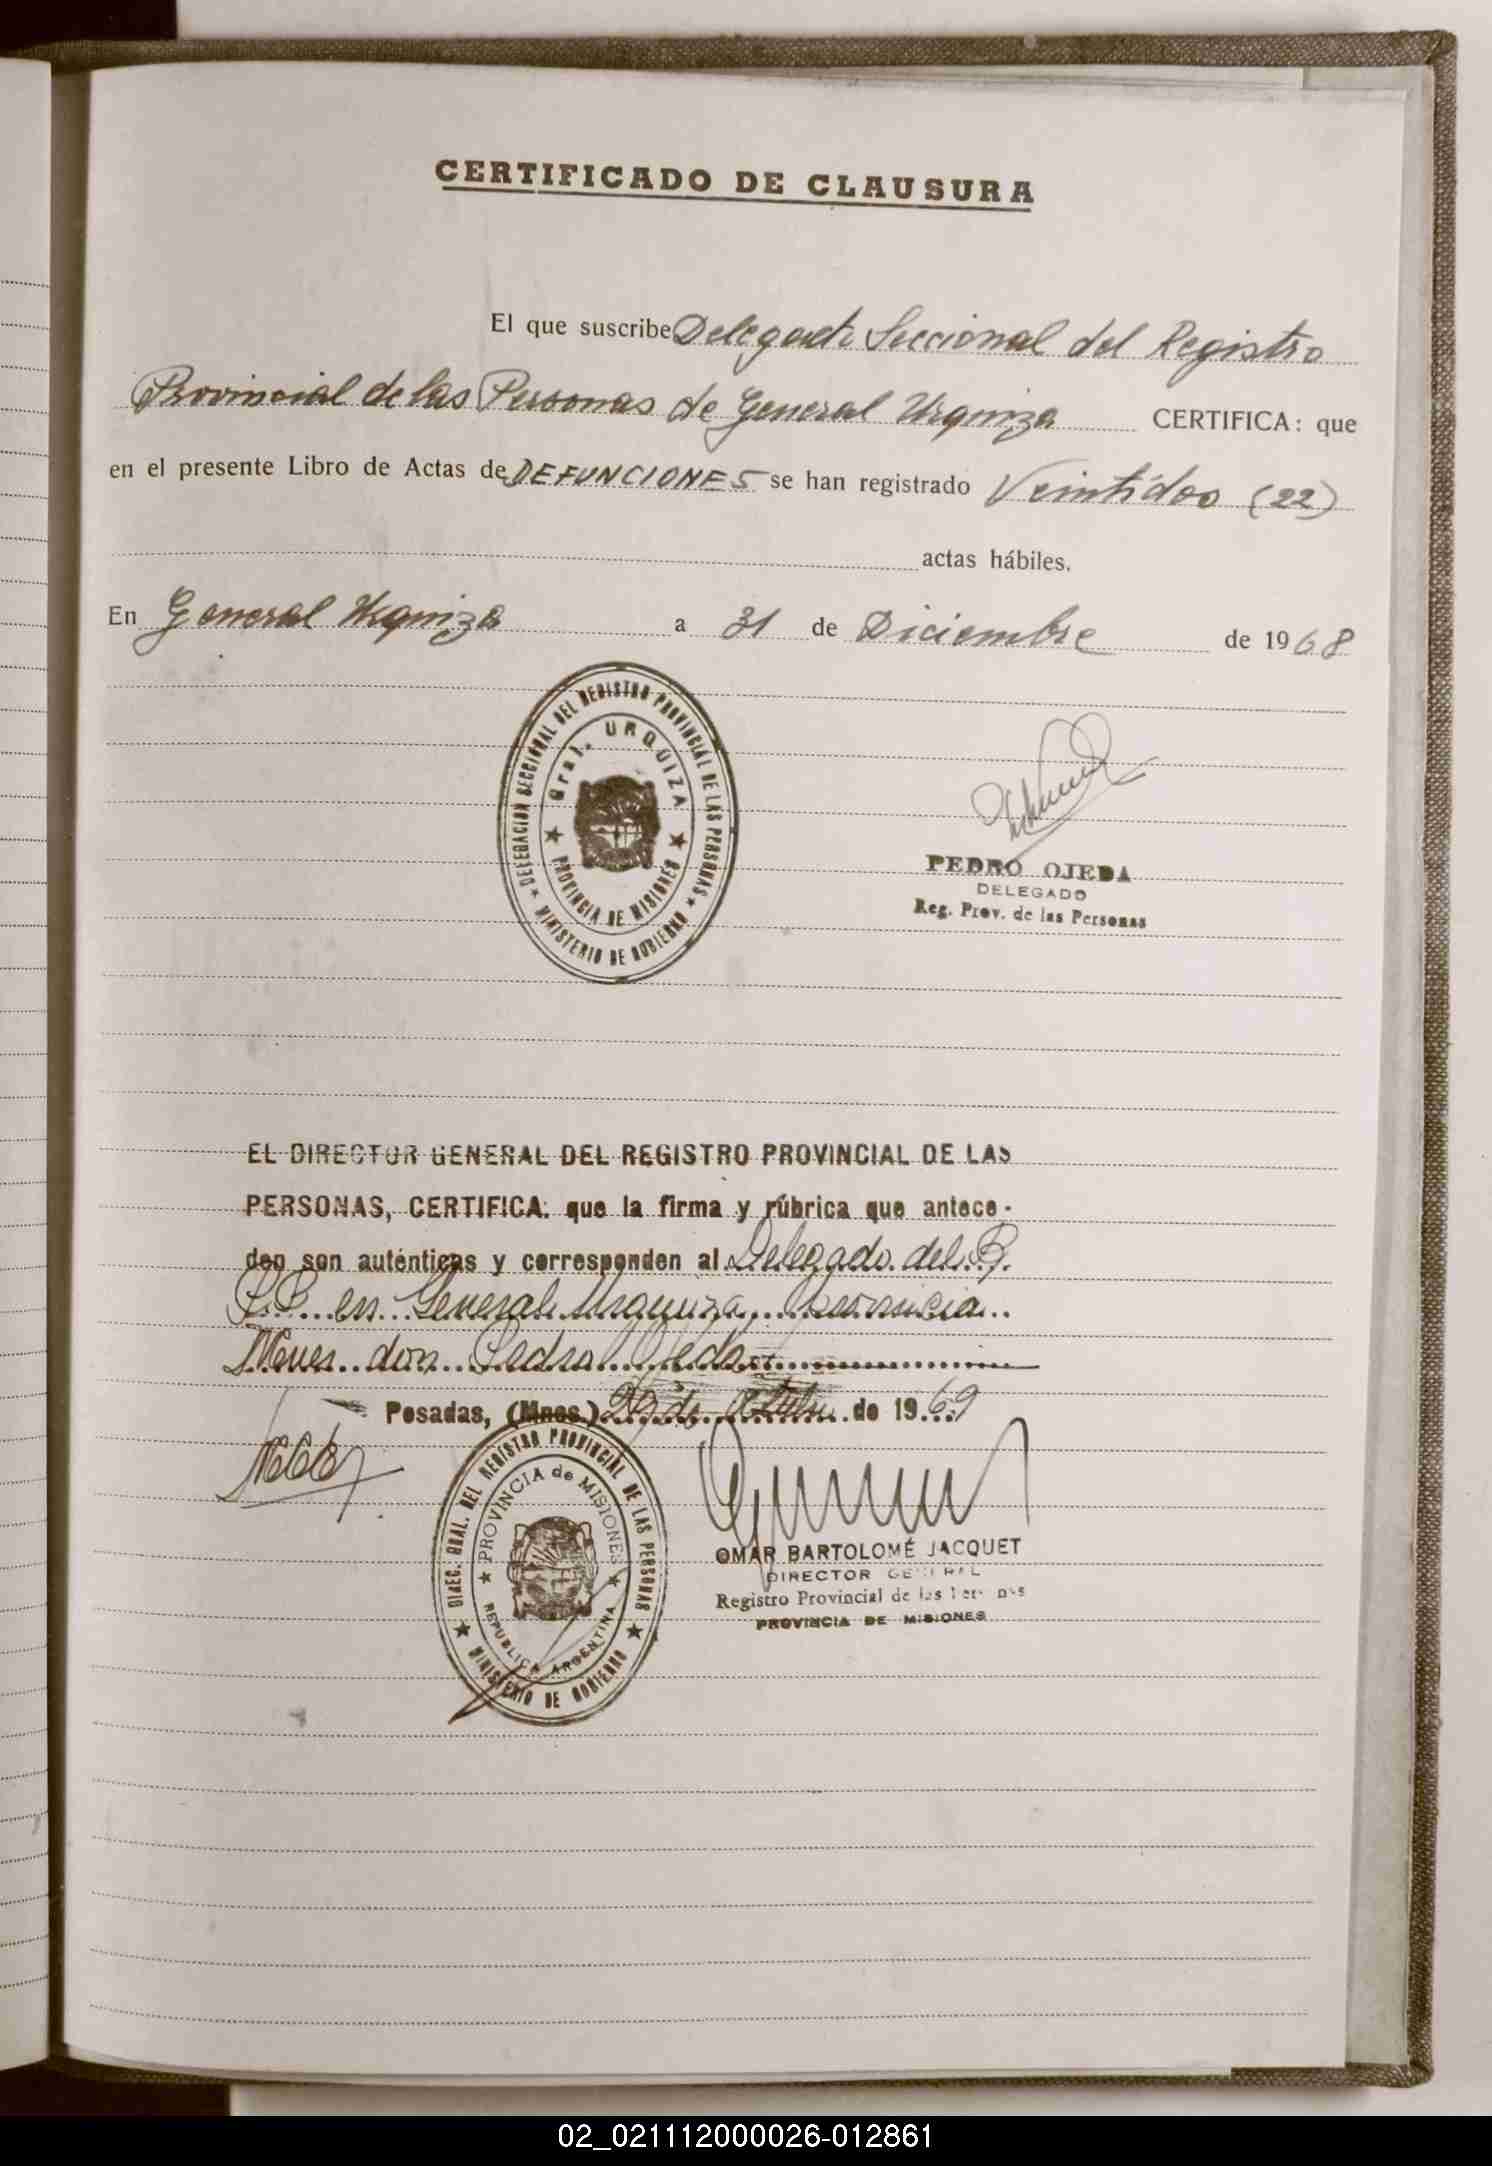 CERTIFICADO DE CLAUSURA
El que suscribe Delegado Seccional del Registro
Provincial de las Personas de General Urquiza CERTIFICA: que
en el presente Libro de Actas de DEFUNCIONES se han registrado Veintidos (22)
actas hábiles.
En General Urquiza a 31 de Diciembre de 1968
DELEGACION SECCIONAL DEL REGISTRO PROVINCIAL DE LAS PERSONAS
Gral. URQUIZA
PROVINCIA DE MISIONES
MINISTERIO DE GOBIERNO
PEDRO OJEDA
DELEGADO
Reg. Prov. de las Personas
EL DIRECTOR GENERAL DEL REGISTRO PROVINCIAL DE LAS
PERSONAS, CERTIFICA: que la firma y rúbrica que antece-
den son auténticas y corresponden al Delegado del R.
P.P. en General Urquiza, Provincia
Mnes. don Pedro Ojeda
Posadas, (Mnes.) 29 de Octubre de 1969
DIREC. GRAL. DEL REGISTRO PROVINCIAL DE LAS PERSONAS
PROVINCIA de MISIONES
REPUBLICA ARGENTINA
MINISTERIO DE GOBIERNO
OMAR BARTOLOMÉ JACQUET
DIRECTOR GENERAL
Registro Provincial de las Personas
PROVINCIA DE MISIONES
02_021112000026-012861